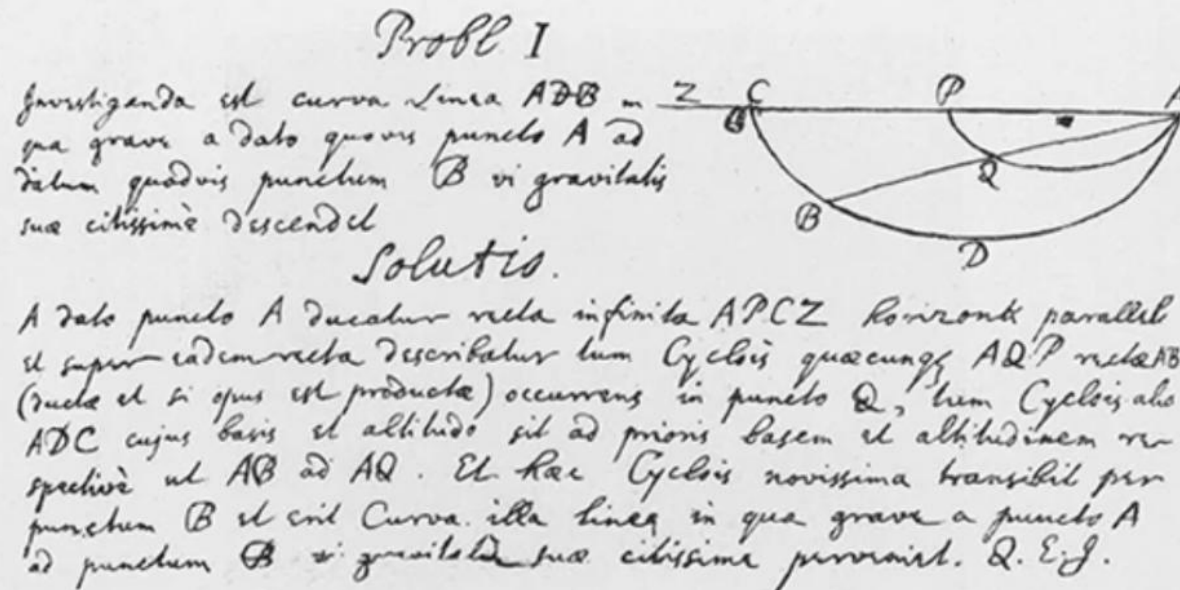 Probl I
Investiganda est curva Linea ADB in
qua grave a dato quovis puncto A ad
datum quodvis punctum B vi gravitatis
suæ citissimè descendet
Z C P A
Q
B
D
Solutio.
A dato puncto A ducatur recta infinita APCZ horizonti parallela
et super eadem recta describatur tum Cyclois quæcunq AQP rectæ AB
(ductæ et si opus est productæ) occurrens in puncto Q, tum Cyclois alia
ADC cujus basis et altitudo sit ad prioris basem et altitudinem re-
spectivè ut AB ad AQ. Et hæc Cyclois novissima transibit per
punctum B et erit Curva illa linea in qua grave a puncto A
ad punctum B vi gravitatis suæ citissime perveniet. Q. E. J.